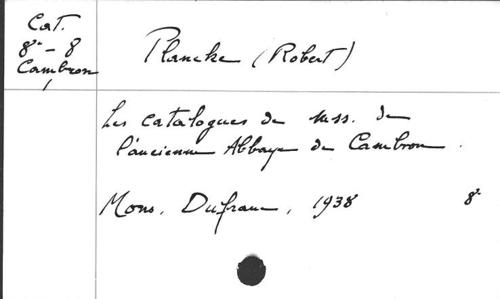 Cat.
8° - 8
Cambron
1
Plancke (Robert)
Les catalogues de mss. de
l'ancienne Abbaye de Cambron.
Mons, Dufrane, 1938 8°